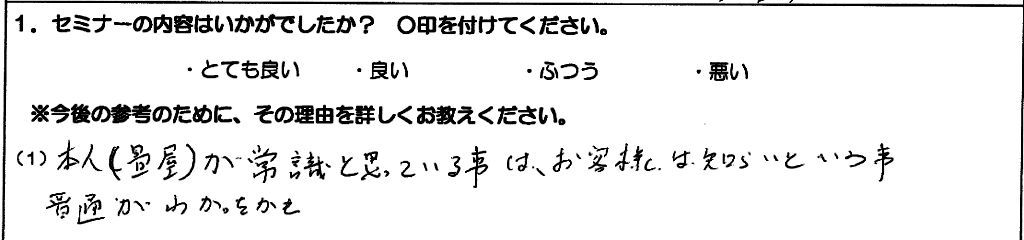 1．セミナーの内容はいかがでしたか？　〇印を付けてください。
・とても良い　・良い　・ふつう　・悪い
※今後の参考のために、その理由を詳しくお教えください。
(1) 本人(畳屋)が常識と思っている事は、お客様は知らいという事
普通がわか